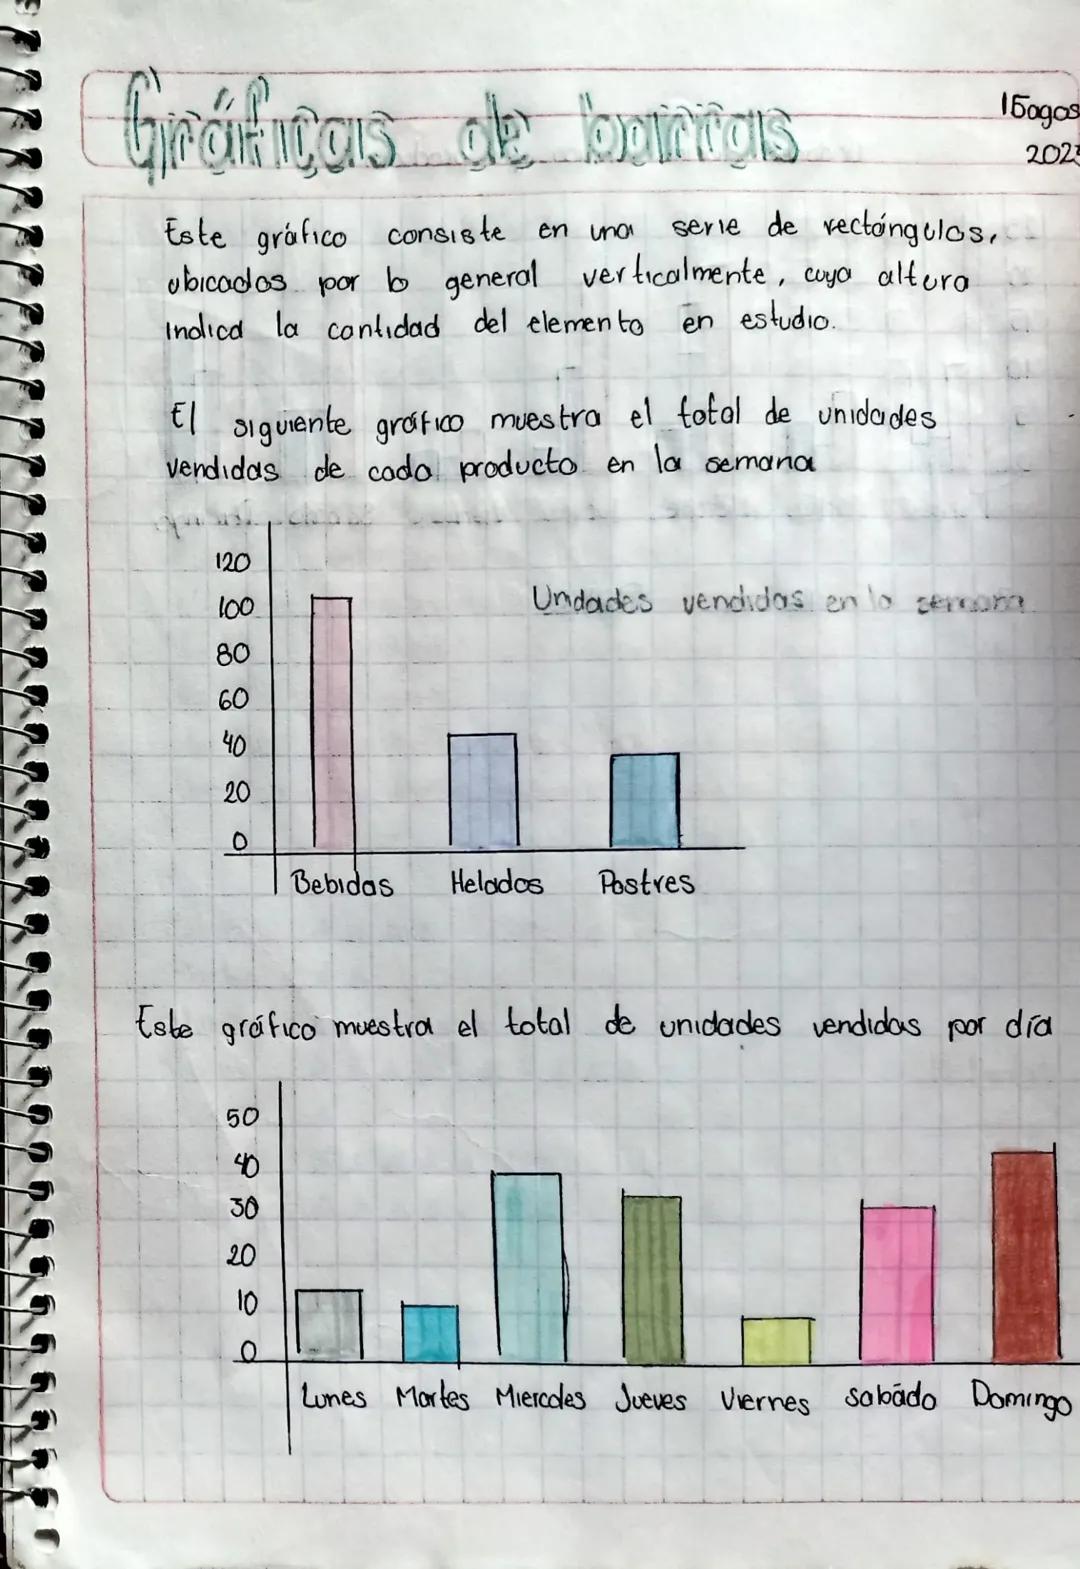 Gráficas de barras
15agos
2023
Este gráfico consiste en una serie de rectángulos,
ubicados por lo general verticalmente, cuya altura
indica la cantidad del elemento en estudio.
El siguiente gráfico muestra el total de unidades
vendidas de cada producto en la semana
120
Undades vendidas en la semana
100
80
60
40
20
0
Bebidas Helados Postres
Este gráfico muestra el total de unidades vendidas por día
50
40
30
20
10
0
Lunes Martes Miercoles Jueves Viernes sabádo Domingo